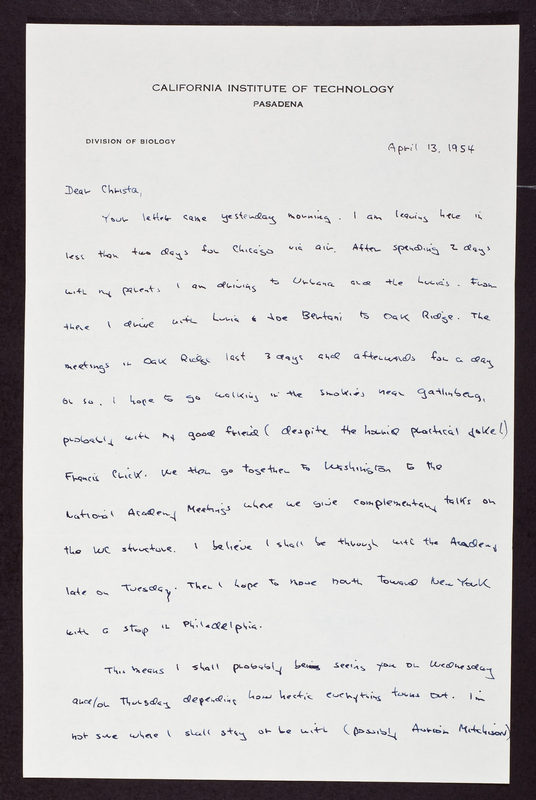 CALIFORNIA INSTITUTE OF TECHNOLOGY
PASADENA
DIVISION OF BIOLOGY
April 13, 1954
Dear Christa,
Your letter came yesterday morning. I am leaving here in
less than two days for Chicago via air. After spending 2 days
with my parents I am driving to Urbana and the Luria's. From
there I drive with Luria & Joe Bertani to Oak Ridge. The
meetings in Oak Ridge last 3 days and afterwards for a day
or so, I hope to go walking in the Smokies near Gatlinberg,
probably with my good friend (despite the horrid practical joke!)
Francis Crick. We then go together to Washington to the
National Academy Meetings where we give complementary talks on
the WC structure. I believe I shall be through with the Academy
late on Tuesday. Then I hope to move north toward New York
with a stop in Philadelphia.
This means I shall probably be seeing you on Wednesday
and/or Thursday depending how hectic everything turns out. I'm
not sure where I shall stay or be with (possibly Mitchison)